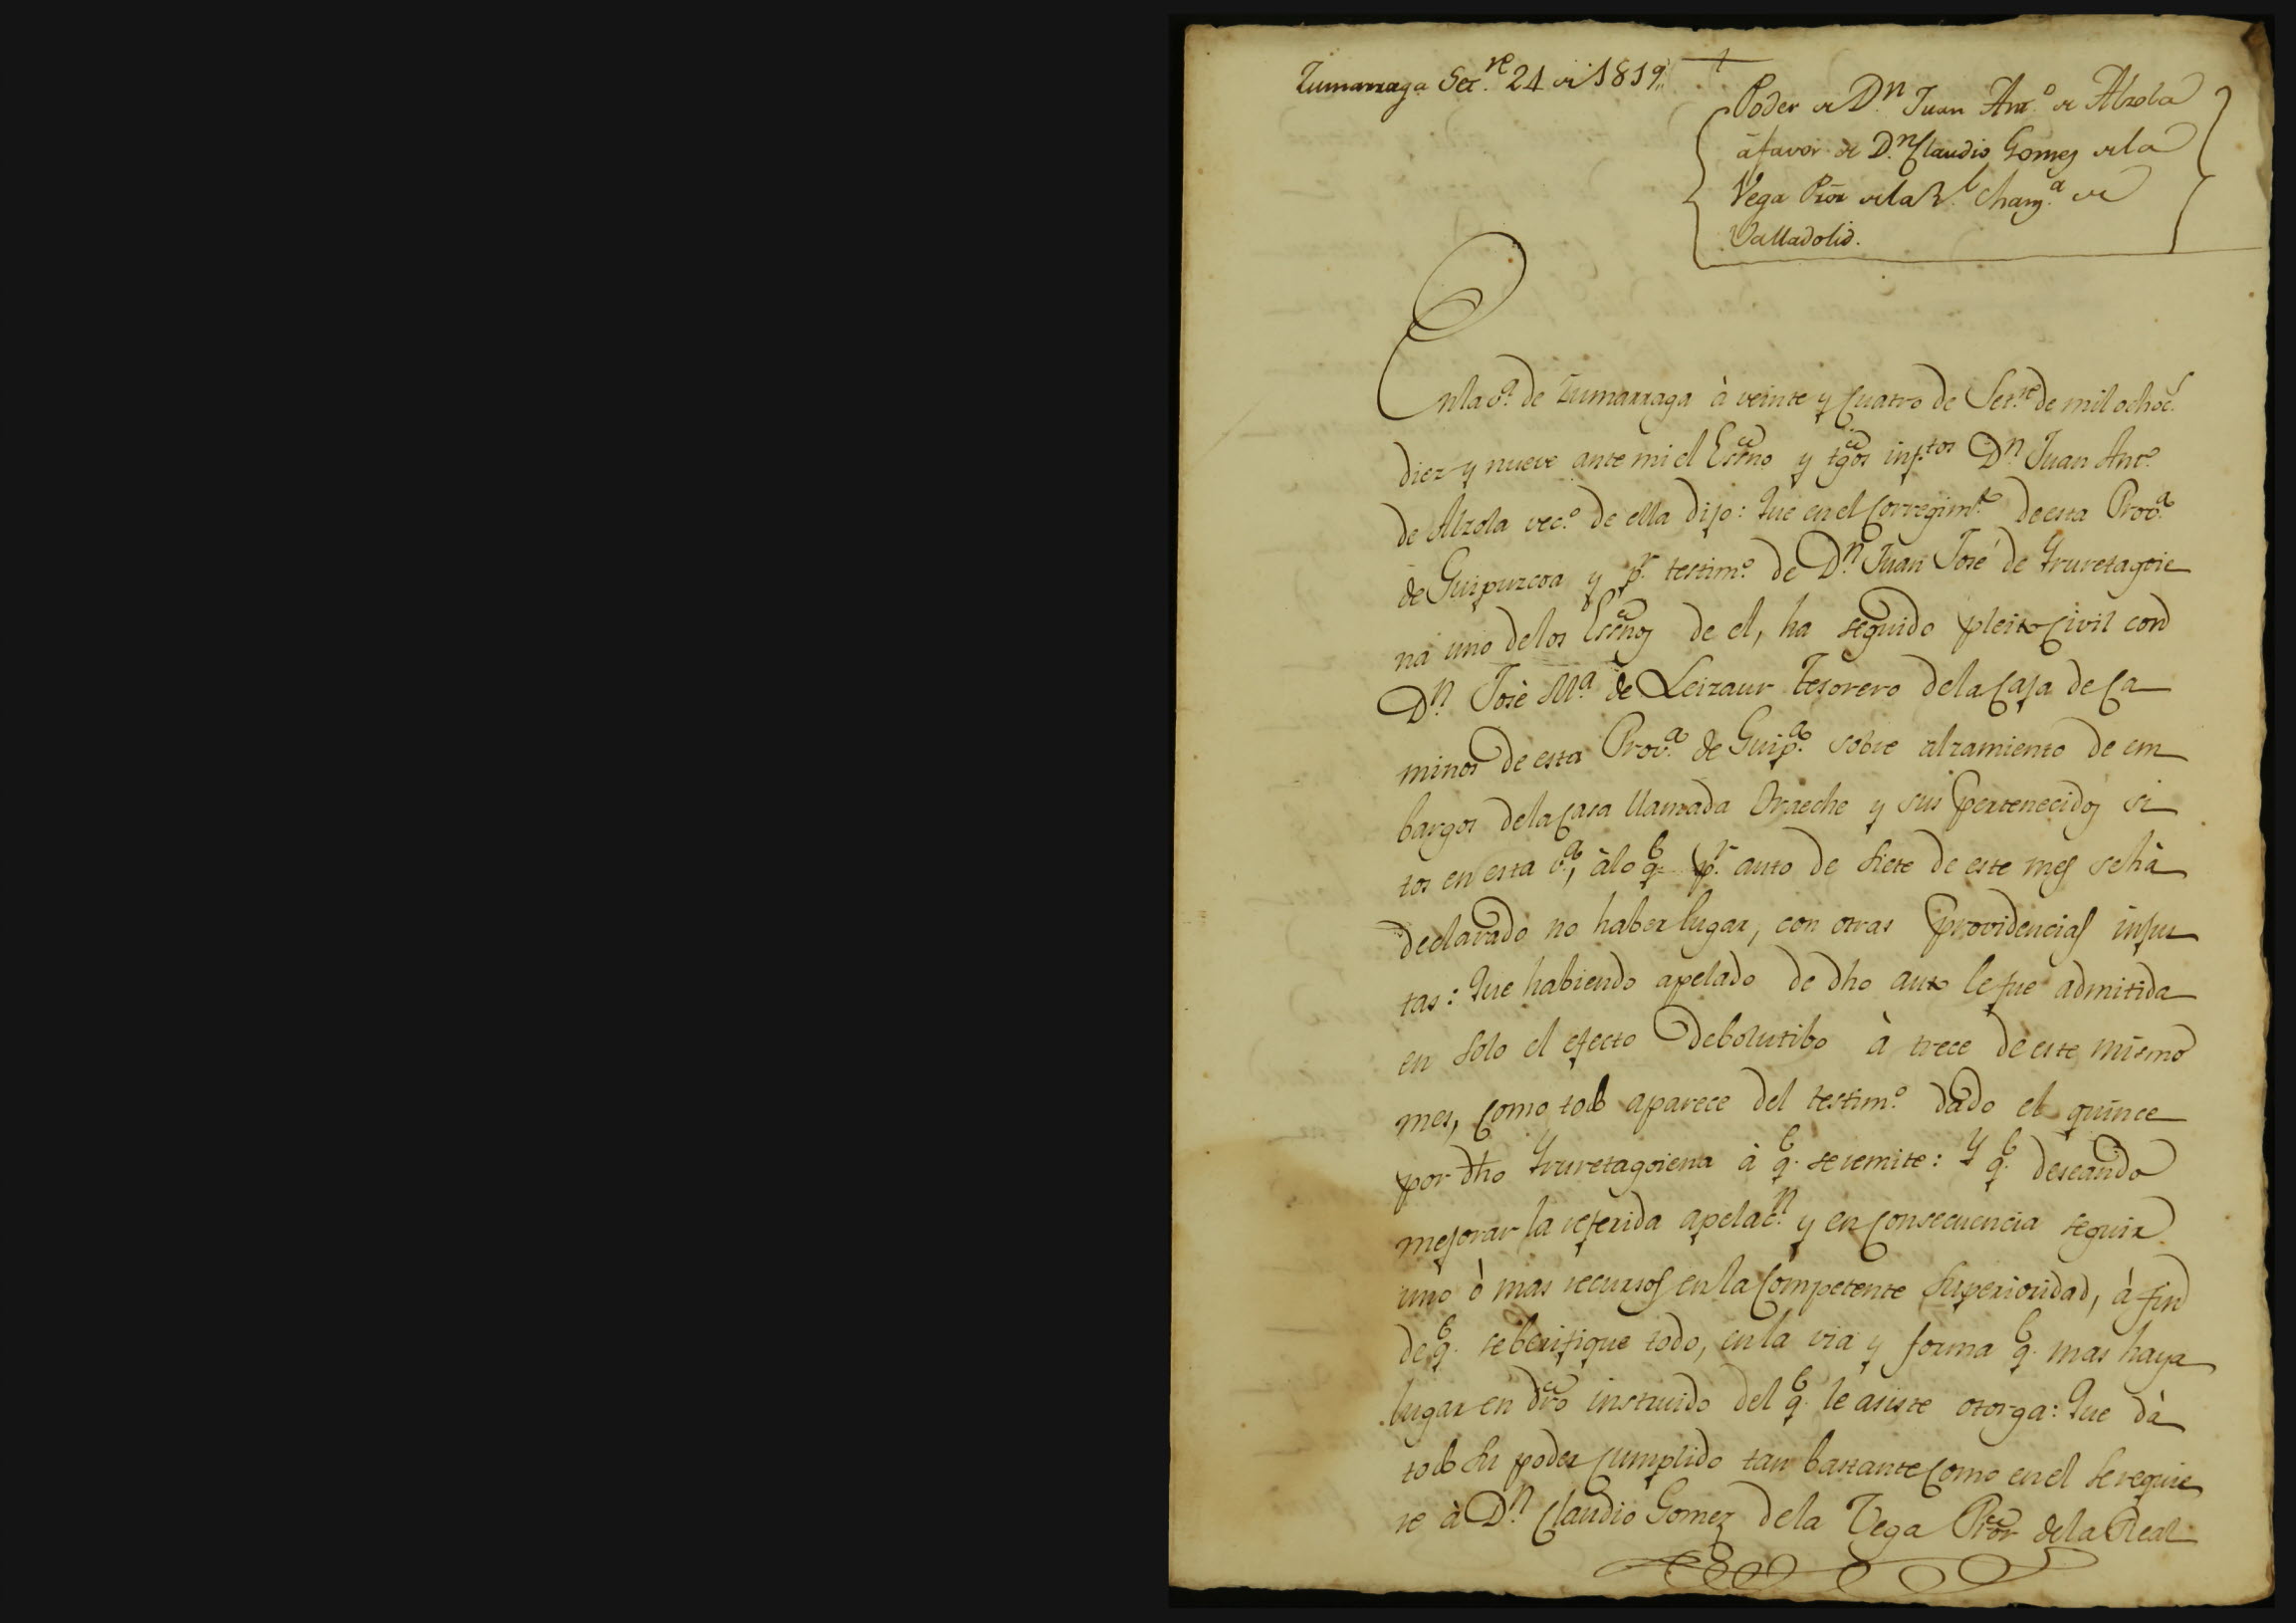 Zumarraga Set.re 24 de 1819
Poder de D.n Juan Ant.o de Alzola
à favor de D.n Claudio Gomez dela
Vega Pror dela R.l Chanz.a de
Valladolid.
Enla v.a de Zumarraga à veinte y cuatro de Set.re de mil ochoc.s
diez y nueve ante mi el Essno y tgos inf.tos D.n Juan Ant.o
de Alzola vec.o de ella dijo: Que en el Corregim.to de esta Prov.a
de Guipuzcoa y p.r testim.o de D.n Juan José de Yruretagoie
na uno delos Essnos de el, ha seguido pleito civil con
D.n José M.a de Leizaur Tesorero dela Caja de Ca
minos de esta Prov.a de Guip.a sobre alzamiento de em
bargos dela Casa llamada Oraeche y sus pertenecidos si
tos en esta v.a, àlo q.e p.r auto de siete de este mes se hà
declarado no haber lugar, con otras providencias insur
tas: Que habiendo apelado de dho auto le fue admitida
en solo el efecto Debolutibo à trece de este mismo
mes, como todo aparece del testim.o dado el quince
por dho Yruretagoiena à q.e se remite: Y q.e deseando
mejorar la referida apelac.n y en consecuencia seguir
uno ò mas recursos en la competente Superioridad, à fin
de q.e se berifique todo, en la via y forma q.e mas haya
lugar en dro instruido del q.e le asiste otorga: Que dà
todo su poder cumplido tan bastante como en el se requie
re à D.n Claudio Gomez dela Vega Pror dela Real